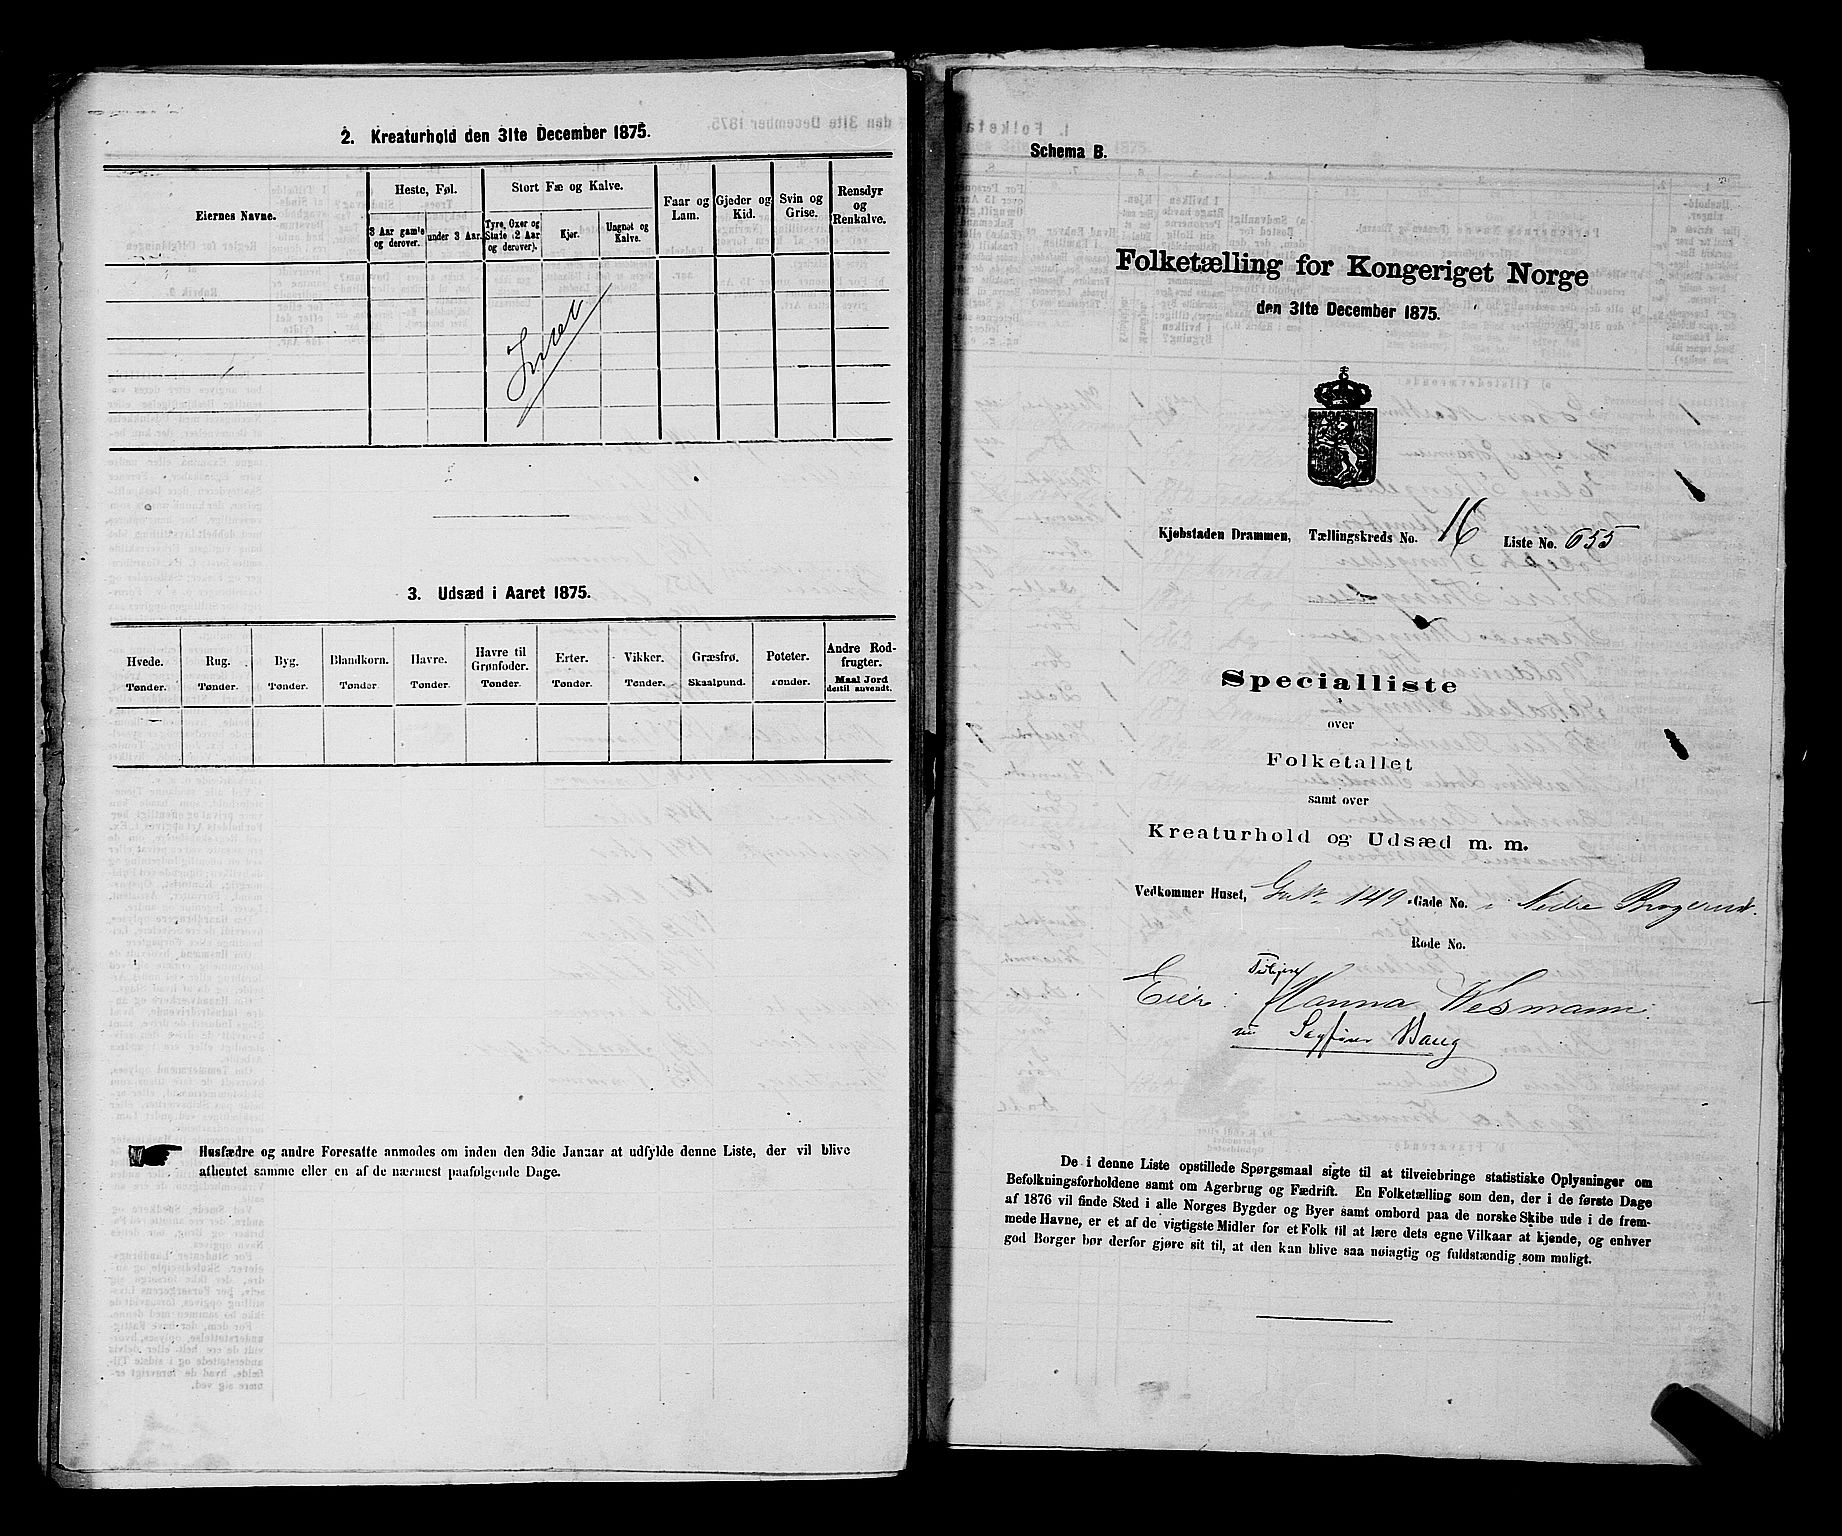 2. Kreaturhold den 31te December 1875.
Eiernes Navne.
Heste, Føl.
3 Aar gamle og derover.
under 3 Aar.
Stort Fæ og Kalve.
Tyre, Oxer og Stude (2 Aar og derover).
Kjør.
Ungnøt og Kalve.
Faar og Lam.
Gjeder og Kid.
Svin og Grise.
Rensdyr og Renkalve.
3. Udsæd i Aaret 1875.
Hvede. Rug. Byg. Blandkorn. Havre. Havre til Grønfoder. Erter. Vikker. Græsfrø. Poteter. Andre Rodfrugter.
Tønder. Tønder. Tønder. Tønder. Tønder. Tønder. Tønder. Tønder. Skaalpund. Tønder. Maal Jord dertil anvendt.
Husfædre og andre Foresatte anmodes om inden den 3die Januar at udfylde denne Liste, der vil blive
afhentet samme eller en af de nærmest paafølgende Dage.
Schema B.
Folketælling for Kongeriget Norge
den 31te December 1875.
Kjøbstaden Drammen, Tællingskreds No. 16 Liste No. 655
Specialliste
over
Folketallet
samt over
Kreaturhold og Udsæd m. m.
Vedkommer Huset, 149 Gade No. i Nedre Bragernæs.
Rode No.
Eier: Hanna Wesmann.
Sagfører Haug
De i denne Liste opstillede Spørgsmaal sigte til at tilveiebringe statistiske Oplysninger om
Befolkningsforholdene samt om Agerbrug og Fædrift. En Folketælling som den, der i de første Dage
af 1876 vil finde Sted i alle Norges Bygder og Byer samt ombord paa de norske Skibe ude i de frem-
mede Havne, er et af de vigtigste Midler for et Folk til at lære dets egne Vilkaar at kjende, og enhver
god Borger bør derfor gjøre sit til, at den kan blive saa nøiagtig og fuldstændig som muligt.